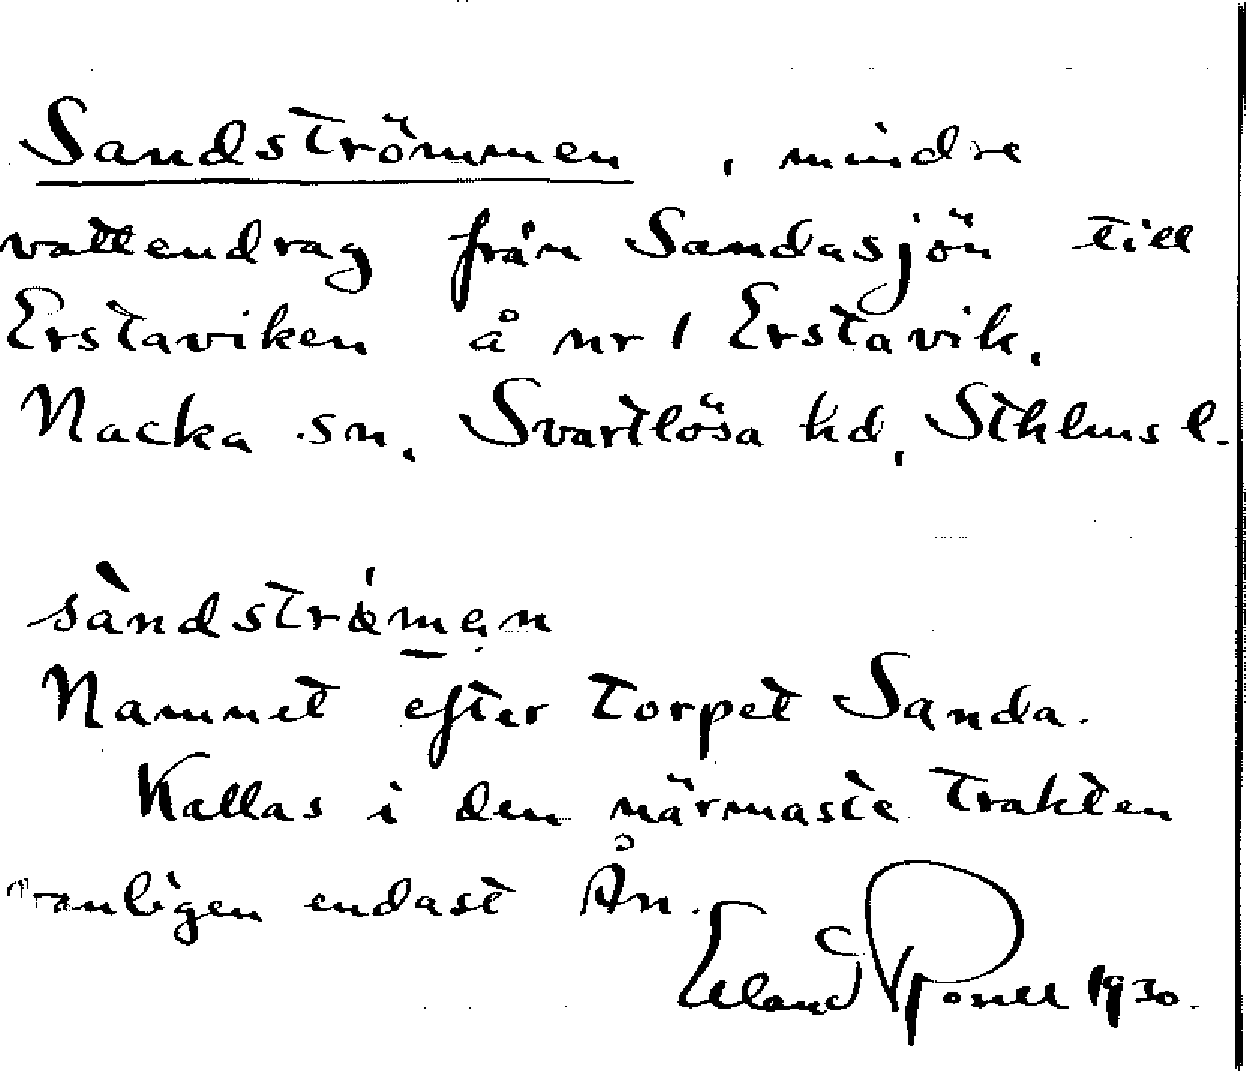 Sandströmmen, mindre
vattendrag från Sandasjön till
Erstaviken å nr 1 Erstavik.
Nacka sn, Svartlösa hd, Sthlms l.
Namnet efter torpet Sanda.
Kallas i den närmaste trakten
vanligen endast Ån.
Erland 1930.